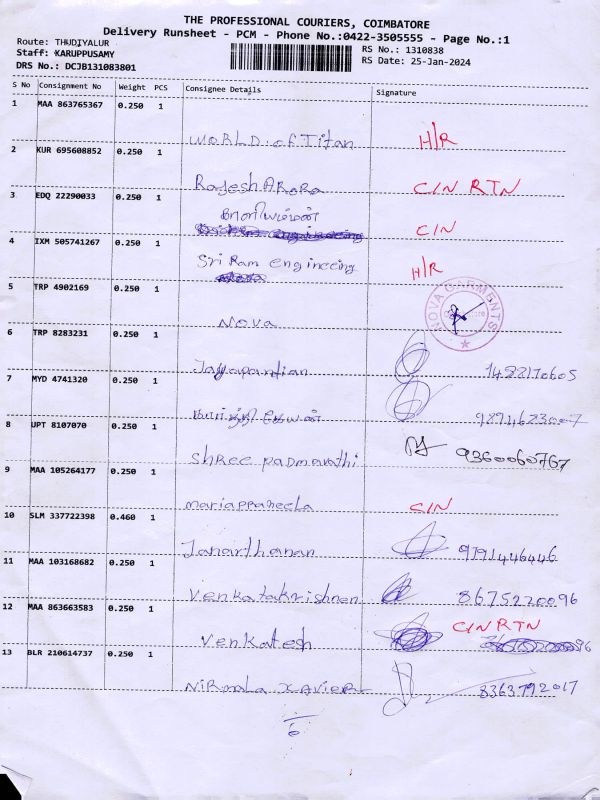 THE PROFESSIONAL COURIERS, COIMBATORE
Delivery Runsheet - PCM - Phone No.:0422-3505555 - Page No.:1
Route: THUDIYALUR
RS No.: 1310838
Staff: KARUPPUSAMY
RS Date: 25-Jan-2024
DRS No.: DCJB131083801
S No Consignment No Weight PCS Consignee Details Signature
1 MAA 863765367 0.250 1 WORLD of Titan H/R
2 KUR 695608852 0.250 1 Rajesh ARORA C/N RTN
3 EDQ 22290033 0.250 1 C/N
4 IXM 505741267 0.250 1 Sri Ram engineeing H/R
5 TRP 4902169 0.250 1 Nova NOVA GARMENTS
6 TRP 8283231 0.250 1 Jayapandian
7 MYD 4741320 0.250 1
8 UPT 8107070 0.250 1 Shree padmavathi 9360060767
9 MAA 105264177 0.250 1 C/N
10 SLM 337722398 0.460 1 Janarthanan 9791446446
11 MAA 103168682 0.250 1 Venkatakrishnen 8675220096
12 MAA 863663583 0.250 1 Venkatesh C/N RTN
13 BLR 210614737 0.250 1 NiRmala XAVIER 8363792017
6